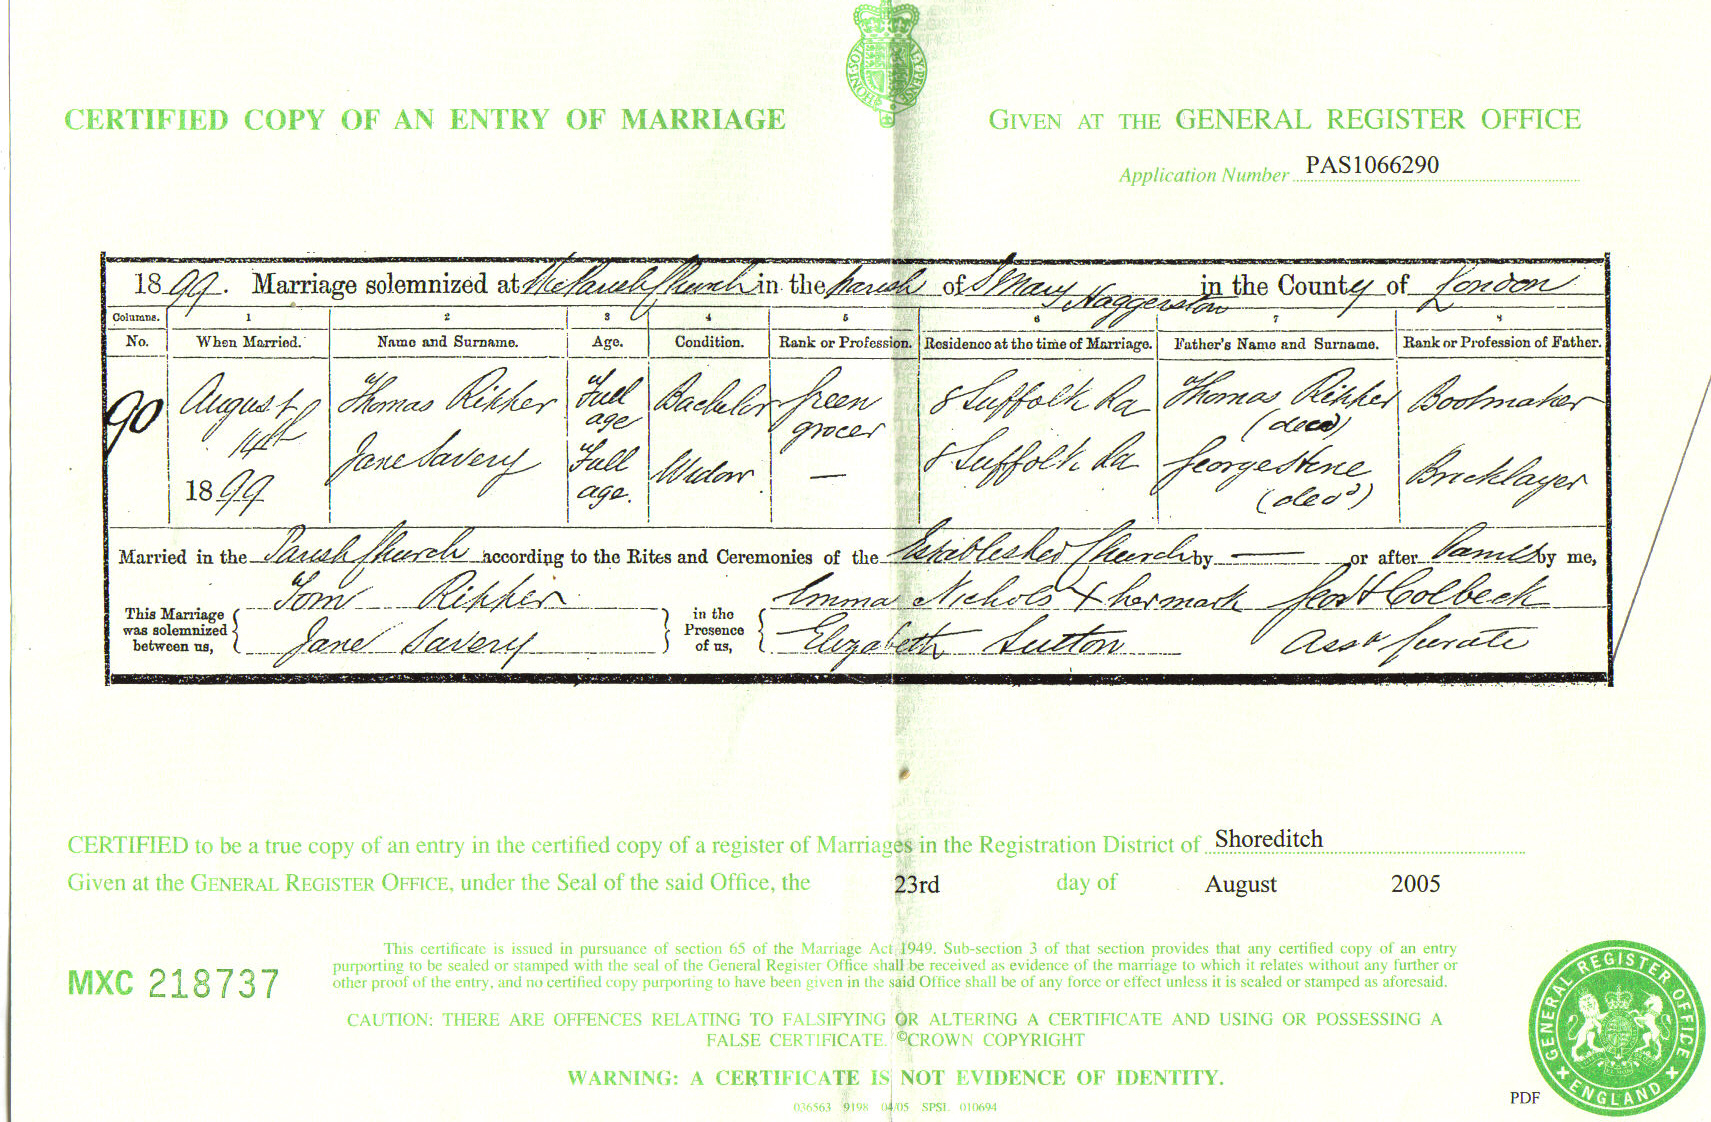 HONI SOIT QUI MAL Y PENSE
CERTIFIED COPY OF AN ENTRY OF MARRIAGE
GIVEN AT THE GENERAL REGISTER OFFICE
Application Number PAS1066290
1899. Marriage solemnized at the Parish Church in the parish of St Mary Haggerston in the County of London
Columns. 1 2 3 4 5 6 7 8
No. When Married. Name and Surname. Age. Condition. Rank or Profession. Residence at the time of Marriage. Father's Name and Surname. Rank or Profession of Father.
90 August 14th 1899 Thomas Ripper Full age Bachelor Green grocer 8 Suffolk Rd Thomas Ripper (decd) Bootmaker
Jane Savery Full age. Widow — 8 Suffolk Rd George Stene (decd) Bricklayer
Married in the Parish Church according to the Rites and Ceremonies of the Established Church by — or after Banns by me,
This Marriage was solemnized between us, Tom Ripper Jane Savery in the Presence of us, Emma Nichols X her mark Elizabeth Sutton Geo H Colbeck Asst Curate
CERTIFIED to be a true copy of an entry in the certified copy of a register of Marriages in the Registration District of Shoreditch
Given at the GENERAL REGISTER OFFICE, under the Seal of the said Office, the 23rd day of August 2005
MXC 218737
This certificate is issued in pursuance of section 65 of the Marriage Act 1949. Sub-section 3 of that section provides that any certified copy of an entry
purporting to be sealed or stamped with the seal of the General Register Office shall be received as evidence of the marriage to which it relates without any further or
other proof of the entry, and no certified copy purporting to have been given in the said Office shall be of any force or effect unless it is sealed or stamped as aforesaid.
CAUTION: THERE ARE OFFENCES RELATING TO FALSIFYING OR ALTERING A CERTIFICATE AND USING OR POSSESSING A
FALSE CERTIFICATE. ©CROWN COPYRIGHT
WARNING: A CERTIFICATE IS NOT EVIDENCE OF IDENTITY.
036563 9198 04/05 SPSL 010694
GENERAL REGISTER OFFICE
ENGLAND
PDF